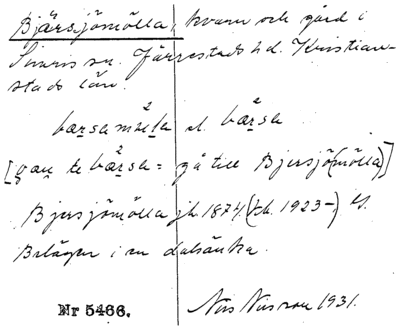 Bjärsjömölla, kvarn och gård i
Simris sn. Järrestads hd. Kristian-
stads län.
bærsamæla el. bærsa
[gau te bærsa = gå till Bjersjö(mölla)]
Bjersjömölla jb 1874 (1923-)
Belägen i en dalsänka.
Nr 5466. Nils Nilsson 1931.